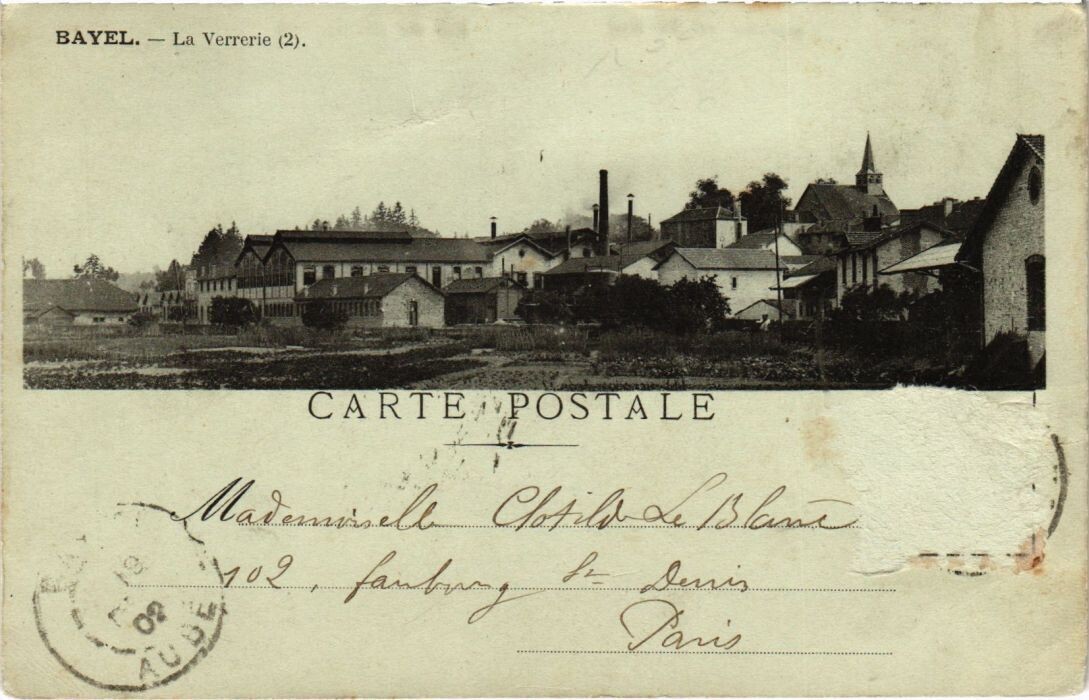 BAYEL. — La Verrerie (2).
CARTE POSTALE
Mademoiselle Clotilde Le Blanc
102, faubourg St Denis
Paris
02
AUBE